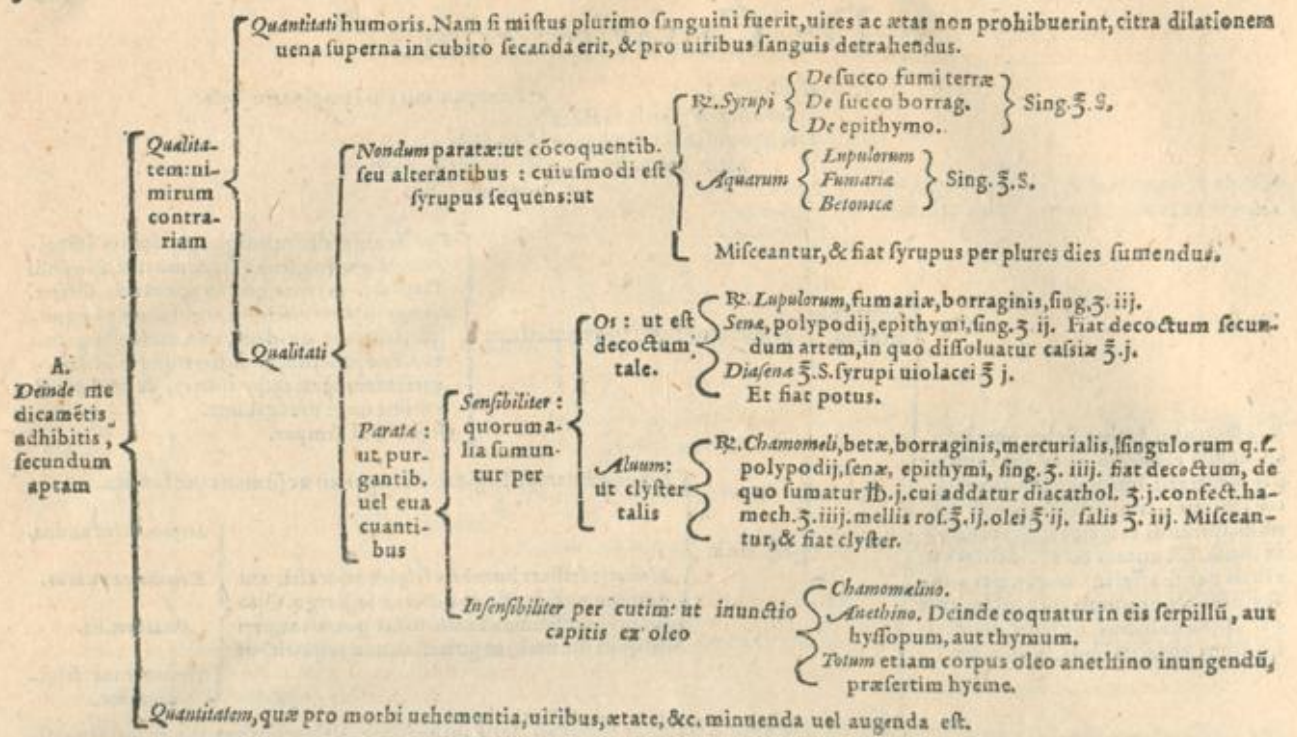 Quantitati humoris. Nam ſi miſtus plurimo ſanguini fuerit, uires ac ætas non prohibuerint, citra dilationem
uena ſuperna in cubito ſecanda erit, & pro uiribus ſanguis detrahendus.
A.
Deinde me
dicamẽtis
adhibitis,
ſecundum
aptam
Qualita-
tem: ni-
mirum
contra-
riam
Qualitati
Nondum paratæ: ut cõcoquentib.
ſeu alterantibus : cuiuſmodi eſt
ſyrupus ſequens: ut
℞. Syrupi
De ſucco fumi terræ
De ſucco borrag.
De epithymo.
Sing. ℥. S.
Aquarum
Lupulorum
Fumariæ
Betonicæ
Sing. ℥. S.
Miſceantur, & fiat ſyrupus per plures dies ſumendus.
Paratæ :
ut pur-
gantib.
uel eua
cuanti-
bus
Senſibiliter :
quorum a-
lia ſumun-
tur per
Os : ut eſt
decoctum
tale.
℞. Lupulorum, fumariæ, borraginis, ſing. ʒ. iij.
Senæ, polypodij, epithymi, ſing. ʒ ij. Fiat decoctum ſecun-
dum artem, in quo diſſoluatur caſsiæ ℥. j.
Diaſenæ ℥. S. ſyrupi uiolacei ℥ j.
Et fiat potus.
Aluum:
ut clyſter
talis
℞. Chamomeli, betæ, borraginis, mercurialis, ſingulorum q. ſ.
polypodij, ſenæ, epithymi, ſing. ʒ. iiij. fiat decoctum, de
quo ſumatur ℔. j. cui addatur diacathol. ʒ. j. confect. ha-
mech. ʒ. iiij. mellis roſ. ℥. ij. olei ℥ ij. ſalis ℥. iij. Miſcean-
tur, & fiat clyſter.
Inſenſibiliter per cutim: ut inunctio
capitis ex oleo
Chamomælino.
Anethino. Deinde coquatur in eis ſerpillũ, aut
hyſſopum, aut thymum.
Totum etiam corpus oleo anethino inungendũ,
præſertim hyeme.
Quantitatem, quæ pro morbi uehementia, uiribus, ætate, &c. minuenda uel augenda eſt.